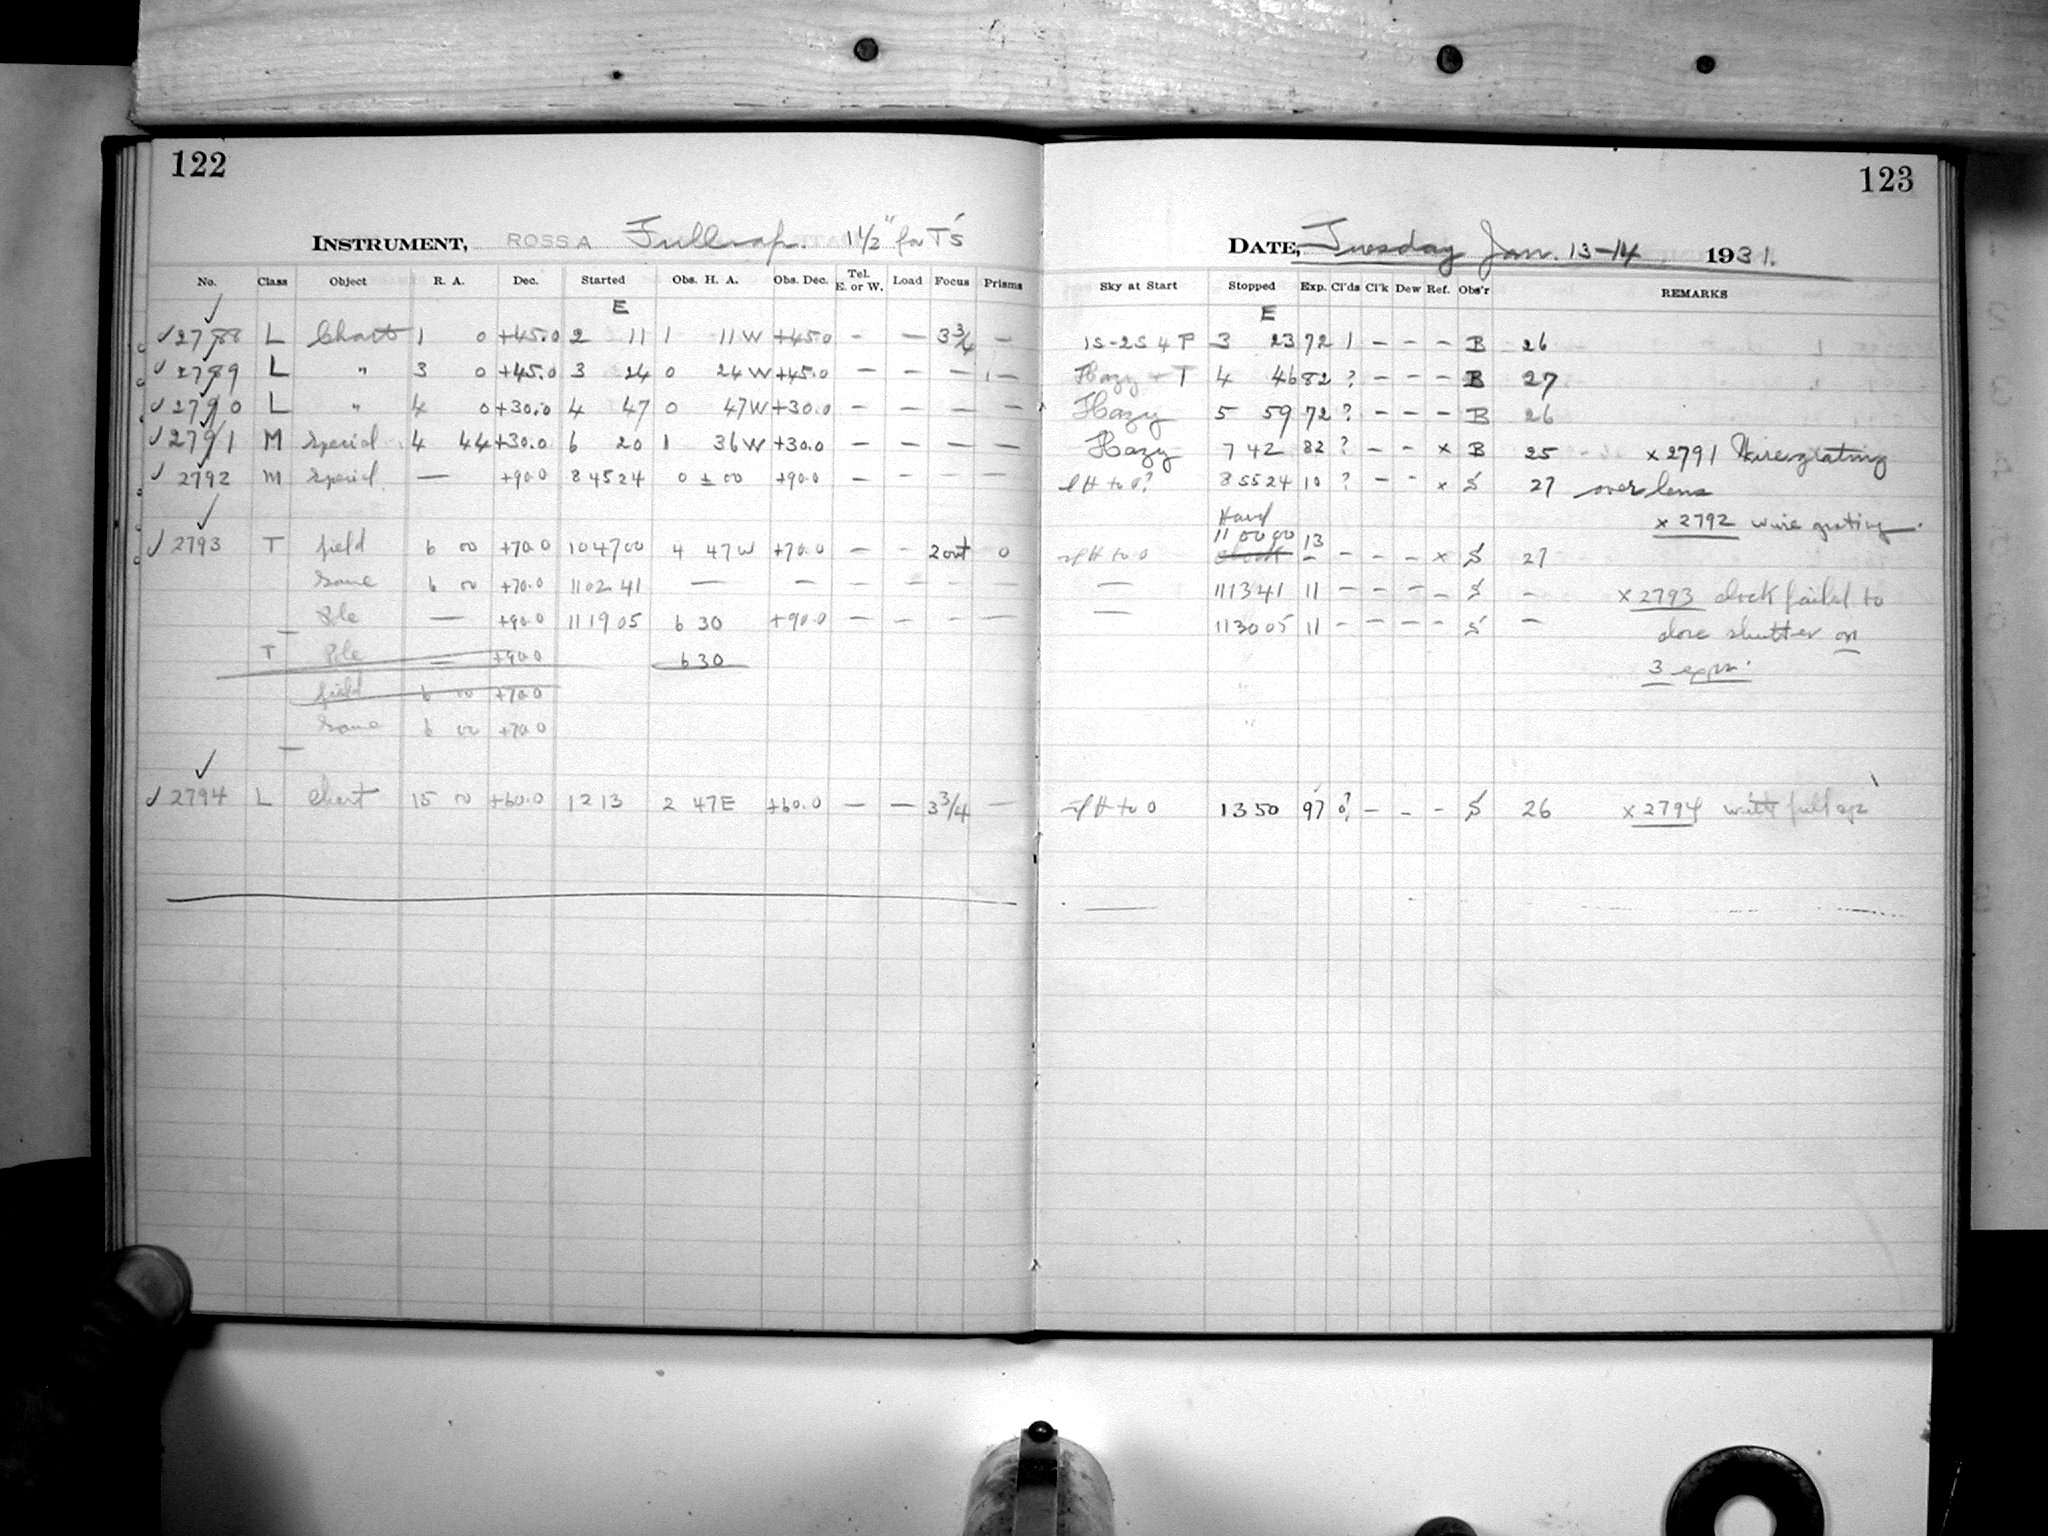 122
123
INSTRUMENT, ROSS A Full ap. 1 1/2" for T's
DATE, Tuesday Jan. 13-14 1931.
No. Class Object R. A. Dec. Started Obs. H. A. Obs. Dec. Tel. E. or W. Load Focus Prisms Sky at Start Stopped Exp. Cl'ds Cl'k Dew Ref. Obs'r REMARKS
E E
✓ 2788 L Chart 1 0 +45.0 2 11 1 11 W +45.0 - - 3 3/4 - 1S-2S 4 P 3 23 72 1 - - - B 26
✓ 2789 L " 3 0 +45.0 3 24 0 24 W +45.0 - - - - Hazy T 4 46 82 ? - - - B 27
✓ 2790 L " 4 0 +30.0 4 47 0 47 W +30.0 - - - - Hazy 5 59 72 ? - - - B 26
✓ 2791 M Special 4 44 +30.0 6 20 1 36 W +30.0 - - - - Hazy 7 42 82 ? - - x B 25 x 2791 Wire grating
✓ 2792 M Special — +90.0 8 45 24 0 ± 00 +90.0 - - - - H to 0? 8 55 24 10 ? - - x S 27 over lens
Hand x 2792 wire grating.
✓ 2793 T field 6 00 +70.0 10 47 00 4 47 W +70.0 - - 2 out 0 H to 0 11 00 00 13 - - - x S 27
Same 6 00 +70.0 11 02 41 — — - - - - — 11 13 41 11 - - - - S - x 2793 clock failed to
Pole — +90.0 11 19 05 6 30 +90.0 - - - - — 11 30 05 11 - - - - S - close shutter on
T Pole — +90.0 6 30 3 expn.
field 6 00 +70.0
Same 6 00 +70.0
✓ 2794 L Chart 15 00 +60.0 12 13 2 47 E +60.0 - - 3 3/4 - H to 0 13 50 97 0? - - - S 26 x 2794 with full ap